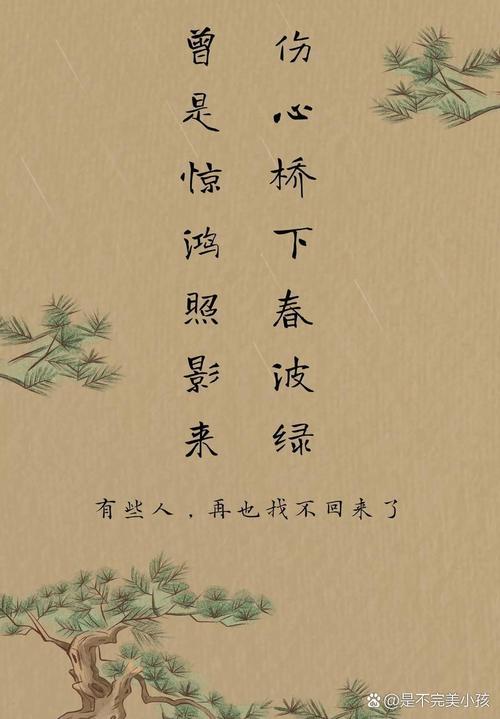 伤心桥下春波绿
曾是惊鸿照影来
有些人，再也找不回来了
@是不完美小孩